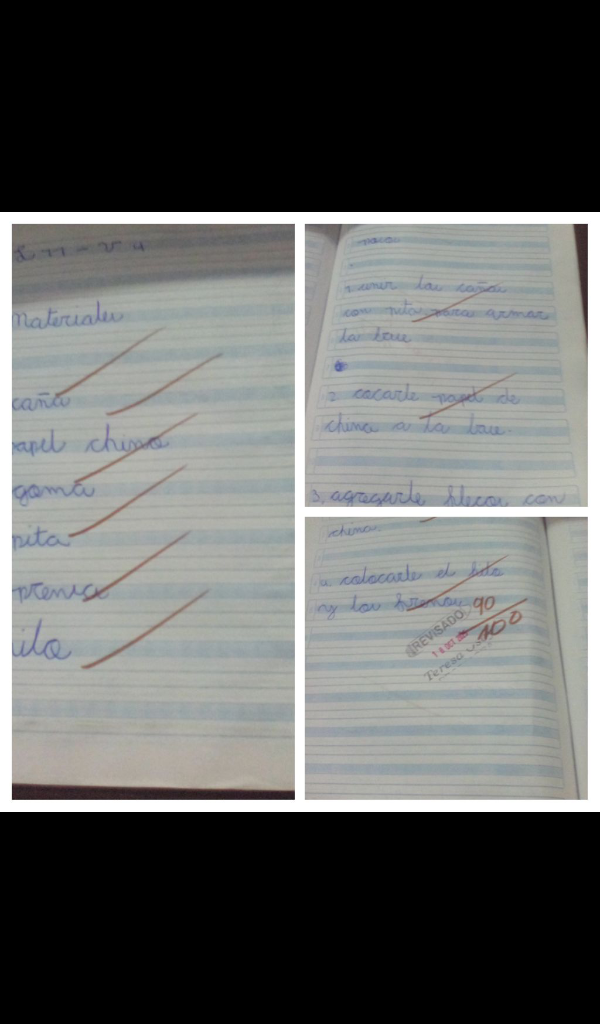 Materiales
caña
papel chino
goma
pita
prensa
ilo
1 unir las cañas
con pita para armar
la base
2 cocarle papel de
china a la base.
3. agregarle flecos con
china.
4 colocarle el hilo
y los frenos
90
100
REVISADO
Teresa